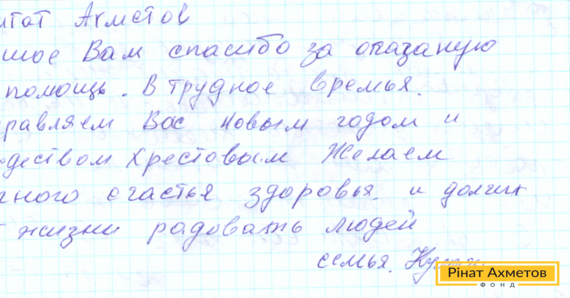 итат Ахметов
шое Вам спасибо за оказаную
помощь. В трудное времья.
равляем Вас Новым годом и
деством Хрестовым Желаем
ного счастья здоровья. и долгих
жизни радовать людей
семья.
Рінат Ахметов
ФОНД